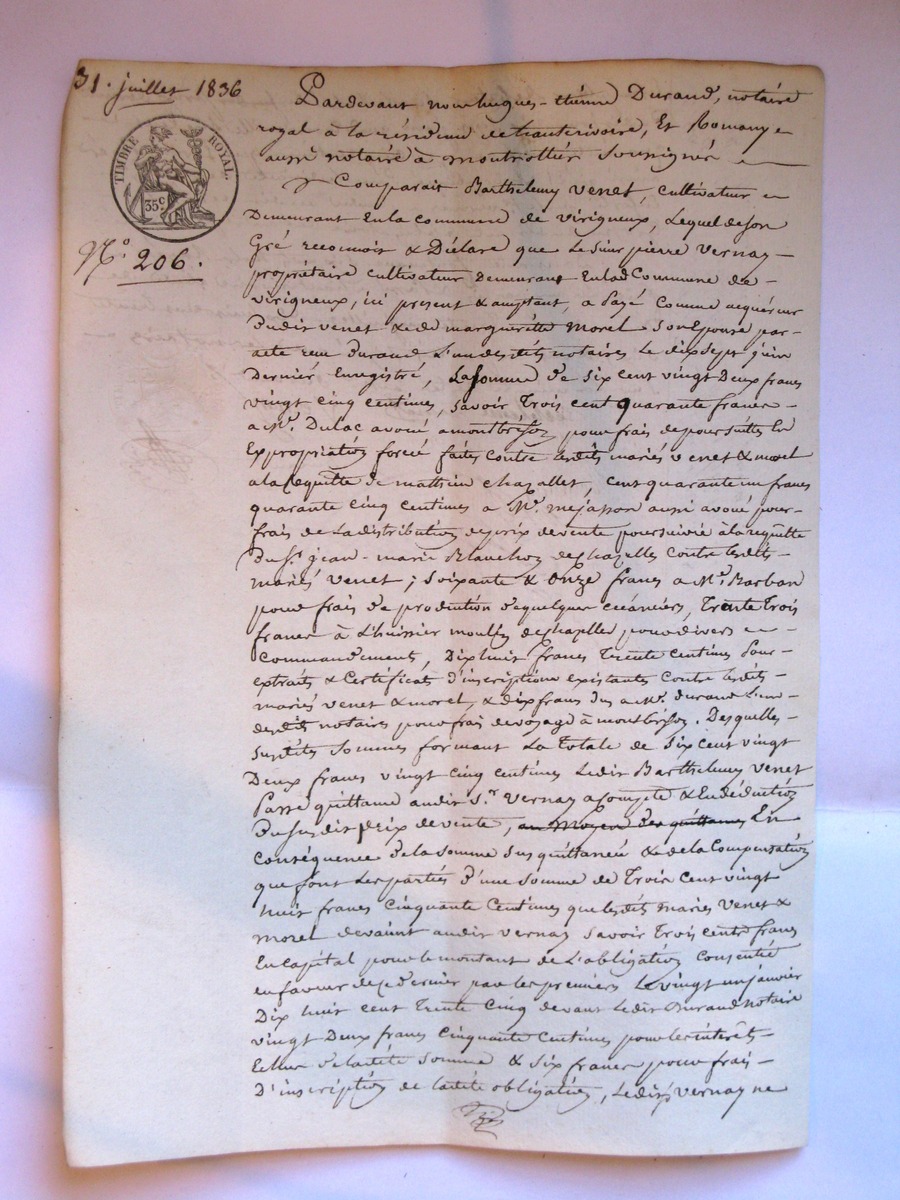 31. juillet 1836
TIMBRE ROYAL.
35c
N.° 206.
Pardevant nous hugues-étienne Durand, notaire
royal à la résidence de hauterivoire, Et Romany
aussi notaire à montrottier soussignés
Comparait Barthelemy venet, cultivateur
Demeurant En la commune de virigneux, Lequel de son
Gré reconnoit & Déclare que Le Sieur pierre vernay
propriétaire cultivateur demeurant En lad Commune de
virigneux, ici present & acceptant, a payé Comme acquéreur
Dudit venet & de margueritte morel Son Epouse par
acte reçu Durand L'un desdits notaires Le dix sept juin
Dernier Enregistré, La Somme de Six Cent vingt Deux francs
vingt cinq centimes, Savoir Trois cent quarante francs
a M.r Dulac avoué a montbrison pour frais de poursuittes En
Expropriation forcée faites contre lesdits mariés venet & morel
a la Requette de mathieu chazallet, Cent quarante un francs
quarante cinq centimes a M.r mejasson aussi avoué pour
frais de La distribution du prix de vente poursuivie à la requette
Du S.r jean-marie Blanchon de chazelles contre lesdits
mariés venet; Soixante & Onze francs a M.r Barban
pour frais de production de quelques créanciers, Trente Trois
francs à L'huissier de chazelles pour divers
Commandements, Dix huit francs Trente Centimes Pour
extraits & Certificats d'inscriptions existantes Contre lesdits
mariés venet & morel, & dix francs dus a M.r durand L'un
desdits notaires pour frais de voyage à montbrison. Desquelles
susdites Sommes formant La Totale de Six cent vingt
Deux francs vingt cinq centimes Ledit Barthelemy venet
Passe quittance audit S.r vernay a Compte & En déduction
Du susdit prix de vente, au moyen des quittances En
Conséquence de la Somme Sus quittancée & de la Compensation
que font Les parties d'une Somme de Trois Cent vingt
huit francs Cinquante Centimes que lesdits mariés venet &
morel devaint audit vernay Savoir Trois cents francs
En Capital pour le montant de L'obligation Consentie
en faveur de ce dernier par les premiers Le vingt un janvier
Dix huit cent Trente Cinq devant Ledit Durand notaire
vingt Deux francs Cinquante Centimes pour les intérêts
Echus de ladite Somme & Six francs pour frais
D'inscription de ladite obligation, Ledit vernay ne